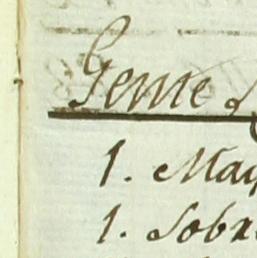 Gente d
1. May
1. Sobre